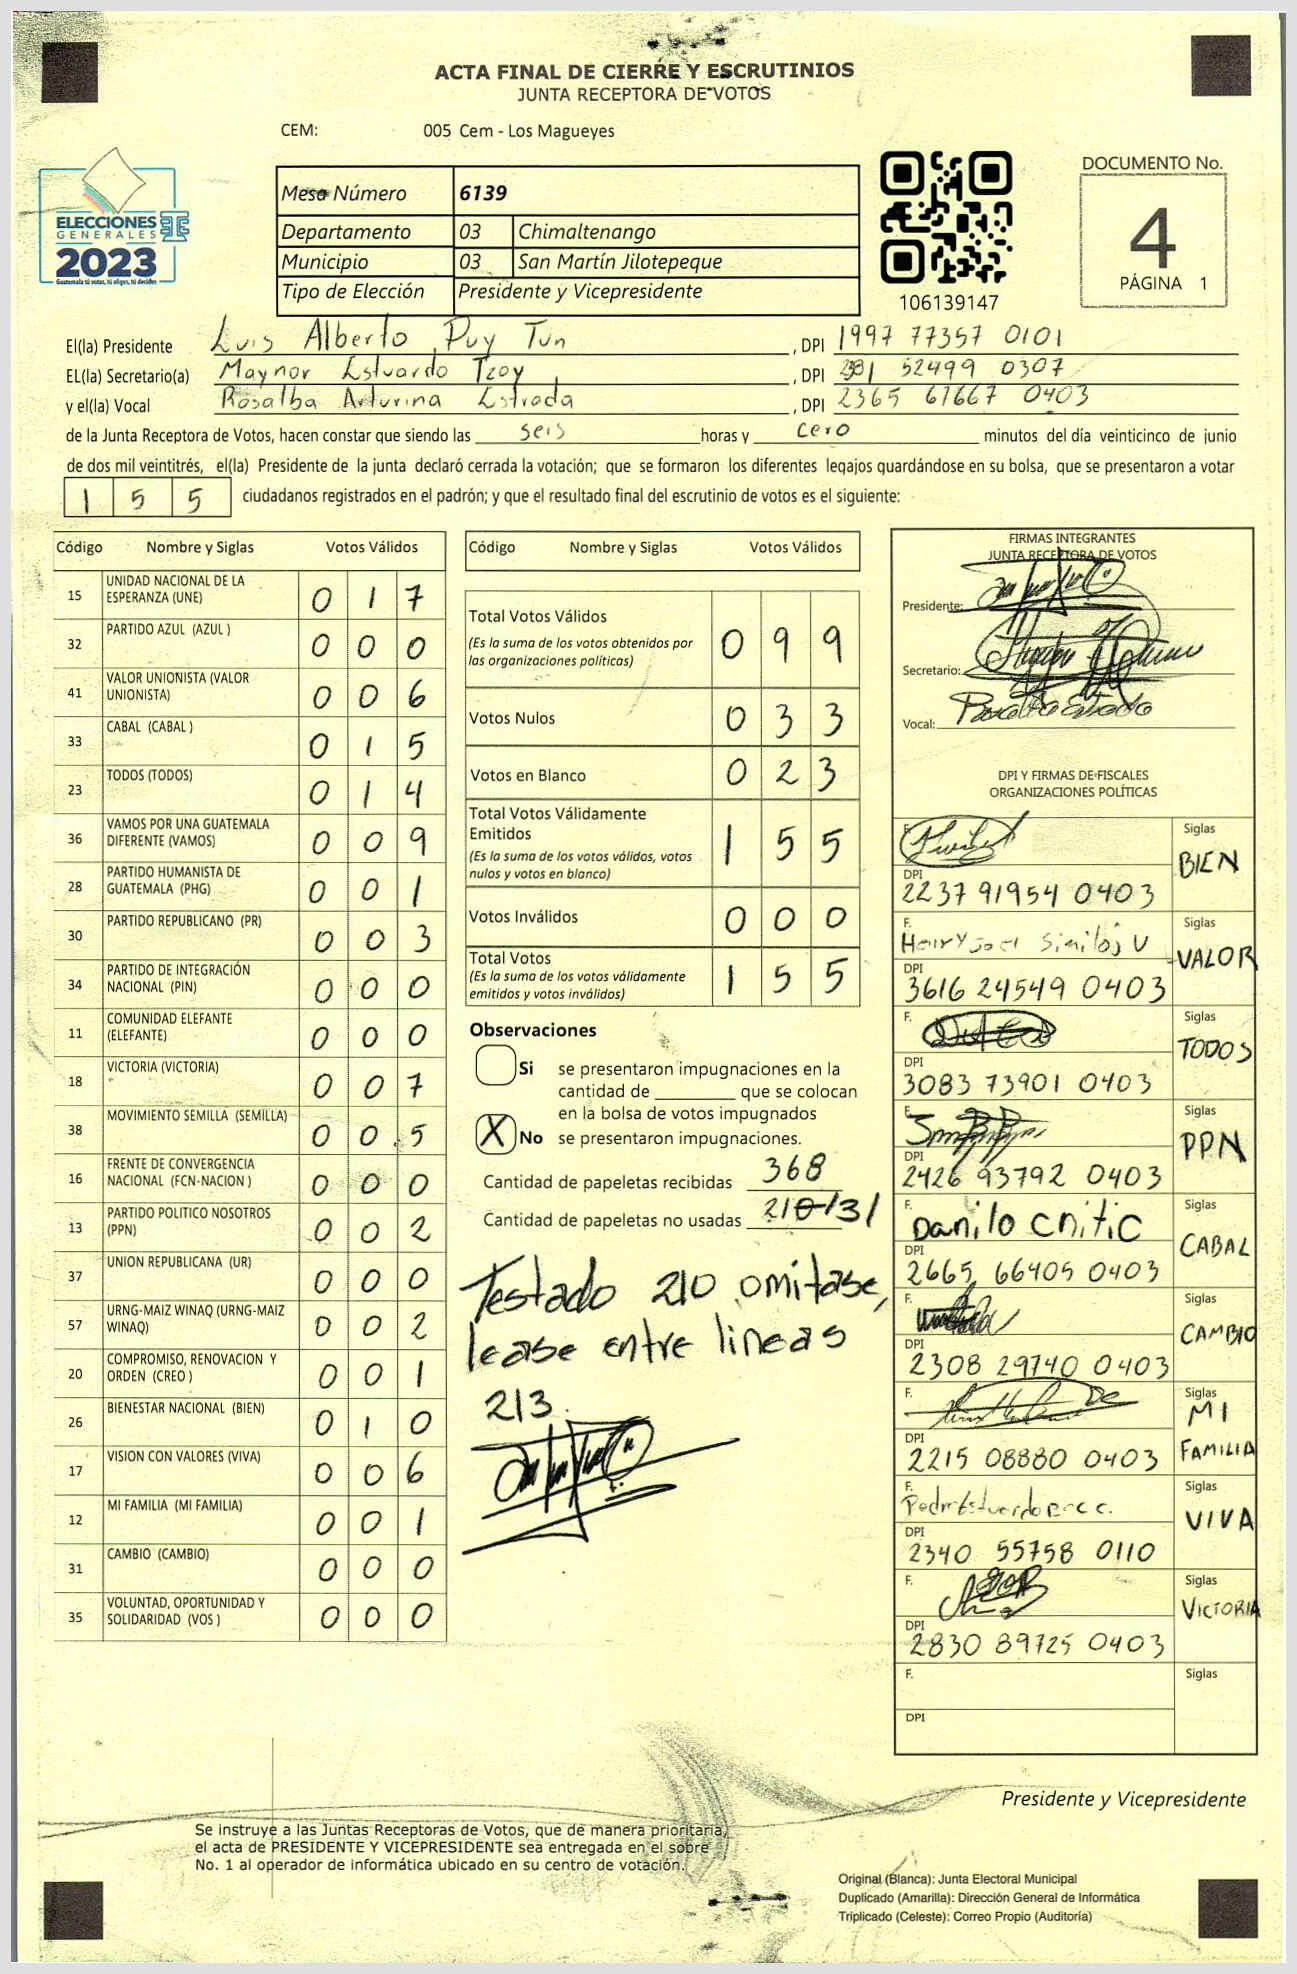 ACTA FINAL DE CIERRE Y ESCRUTINIOS
JUNTA RECEPTORA DE VOTOS
CEM: 005 Cem - Los Magueyes
ELECCIONES
GENERALES
2023
Guatemala tú votas, tú eliges, tú decides
Mesa Número 6139
Departamento 03 Chimaltenango
Municipio 03 San Martín Jilotepeque
Tipo de Elección Presidente y Vicepresidente
106139147
DOCUMENTO No.
4
PÁGINA 1
El(la) Presidente Luis Alberto Puy Tun, DPI 1997 77357 0101
EL(la) Secretario(a) Maynor Estuardo Tzoy, DPI 52499 0307
y el(la) Vocal Rosalba Arturina Estrada, DPI 2365 61667 0403
de la Junta Receptora de Votos, hacen constar que siendo las seis horas y cero minutos del día veinticinco de junio
de dos mil veintitrés, el(la) Presidente de la junta declaró cerrada la votación; que se formaron los diferentes legajos guardándose en su bolsa, que se presentaron a votar
155 ciudadanos registrados en el padrón; y que el resultado final del escrutinio de votos es el siguiente:
Código Nombre y Siglas Votos Válidos
15 UNIDAD NACIONAL DE LA ESPERANZA (UNE) 017
32 PARTIDO AZUL (AZUL ) 000
41 VALOR UNIONISTA (VALOR UNIONISTA) 006
33 CABAL (CABAL ) 015
23 TODOS (TODOS) 014
36 VAMOS POR UNA GUATEMALA DIFERENTE (VAMOS) 009
28 PARTIDO HUMANISTA DE GUATEMALA (PHG) 001
30 PARTIDO REPUBLICANO (PR) 003
34 PARTIDO DE INTEGRACIÓN NACIONAL (PIN) 000
11 COMUNIDAD ELEFANTE (ELEFANTE) 000
18 VICTORIA (VICTORIA) 007
38 MOVIMIENTO SEMILLA (SEMILLA) 005
16 FRENTE DE CONVERGENCIA NACIONAL (FCN-NACION ) 000
13 PARTIDO POLITICO NOSOTROS (PPN) 002
37 UNION REPUBLICANA (UR) 000
57 URNG-MAIZ WINAQ (URNG-MAIZ WINAQ) 002
20 COMPROMISO, RENOVACION Y ORDEN (CREO ) 001
26 BIENESTAR NACIONAL (BIEN) 010
17 VISION CON VALORES (VIVA) 006
12 MI FAMILIA (MI FAMILIA) 001
31 CAMBIO (CAMBIO) 000
35 VOLUNTAD, OPORTUNIDAD Y SOLIDARIDAD (VOS ) 000
Código Nombre y Siglas Votos Válidos
Total Votos Válidos 099
(Es la suma de los votos obtenidos por
las organizaciones políticas)
Votos Nulos 033
Votos en Blanco 023
Total Votos Válidamente
Emitidos 155
(Es la suma de los votos válidos, votos
nulos y votos en blanco)
Votos Inválidos 000
Total Votos 155
(Es la suma de los votos válidamente
emitidos y votos inválidos)
Observaciones
Si se presentaron impugnaciones en la
cantidad de ________ que se colocan
en la bolsa de votos impugnados
X No se presentaron impugnaciones.
Cantidad de papeletas recibidas 368
Cantidad de papeletas no usadas
Testado 210 omitase,
lease entre lineas
213.
FIRMAS INTEGRANTES
JUNTA RECEPTORA DE VOTOS
Presidente:
Secretario:
Vocal:
DPI Y FIRMAS DE FISCALES
ORGANIZACIONES POLÍTICAS
F. Siglas BIEN
DPI 2237 91954 0403
F. Henry Joel Siglas VALOR
DPI 3616 24549 0403
F. Siglas TODOS
DPI 3083 73901 0403
F. Siglas PPN
DPI 2426 93792 0403
F. Danilo Siglas CABAL
DPI 2665 66405 0403
F. Siglas CAMBIO
DPI 2308 29740 0403
F. Siglas MI FAMILIA
DPI 2215 08880 0403
F. Siglas VIVA
DPI 2340 55758 0110
F. Siglas VICTORIA
DPI 2830 89725 0403
F. Siglas
DPI
Presidente y Vicepresidente
Se instruye a las Juntas Receptoras de Votos, que de manera prioritaria,
el acta de PRESIDENTE Y VICEPRESIDENTE sea entregada en el sobre
No. 1 al operador de informática ubicado en su centro de votación.
Original (Blanca): Junta Electoral Municipal
Duplicado (Amarilla): Dirección General de Informática
Triplicado (Celeste): Correo Propio (Auditoría)